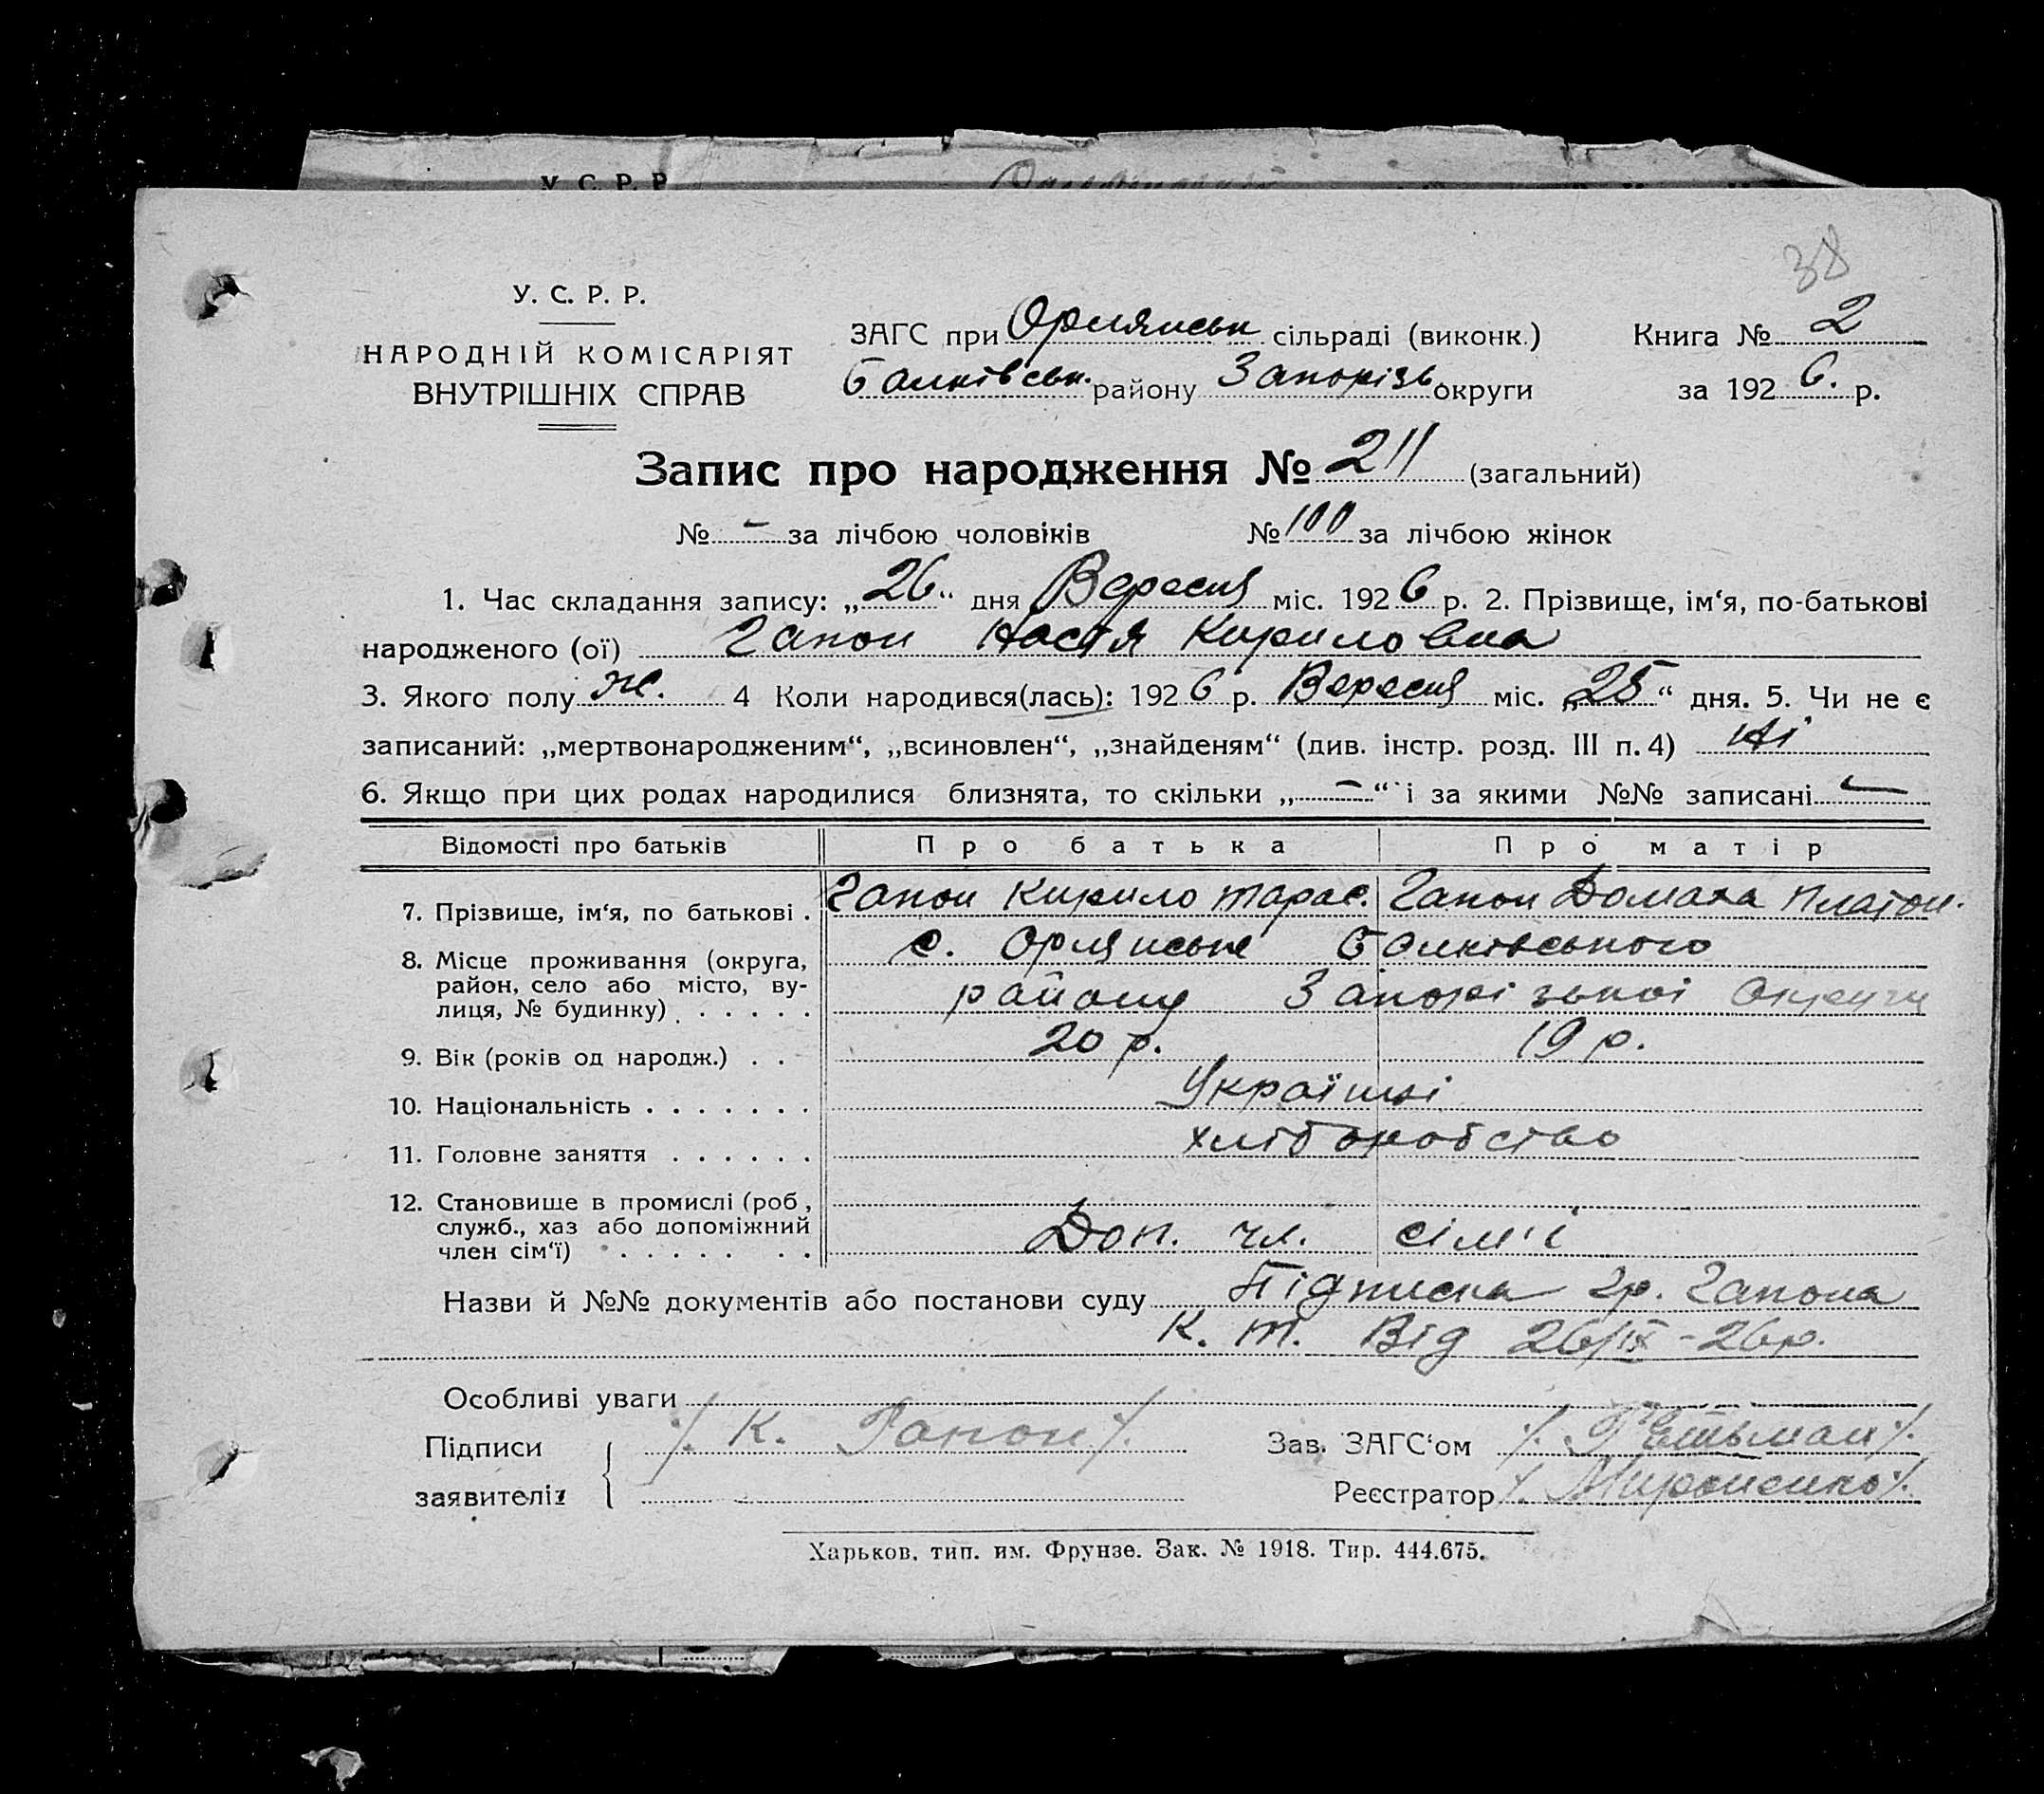 У. С. Р. Р.
38
У. С. Р. Р.
НАРОДНІЙ КОМІСАРІЯТ
ВНУТРІШНІХ СПРАВ
ЗАГС при Орлянськ сільраді (виконк.)
Балківськ. району Запорізь округи
Книга № 2
за 1926. р.
Запис про народження № 211 (загальний)
№ - за лічбою чоловіків № 100 за лічбою жінок
1. Час складання запису: „26“ дня Вересня міс. 1926 р. 2. Прізвище, ім‘я, по-батькові
народженого (ої) Гапон Настя Кириловна
3. Якого полу ж. 4 Коли народився(лась): 1926 р. Вересня міс. „25“ дня. 5. Чи не є
записаний: „мертвонародженим“, „всиновлен“, „знайденям“ (див. інстр. розд. III п. 4) ні
6. Якщо при цих родах народилися близнята, то скільки „-“ і за якими №№ записані -
Відомості про батьків Про батька Про матір
7. Прізвище, ім‘я, по батькові . Гапон Кирило Тарас. Гапон Домаха Платон.
8. Місце проживання (округа, район, село або місто, ву- с. Орлянське Балківського
лиця, № будинку) . . . . . . району Запорізької Округи
9. Вік (років од народж.) . . 20 р. 19 р.
10. Національність . . . . . . . Українці
11. Головне заняття . . . . . . хліборобство
12. Становище в промислі (роб, служб., хаз або допоміжний
член сім‘ї) . . . . . . . Доп. чл. сім'ї
Назви й №№ документів або постанови суду Підписка гр. Гапона
К. Т. Від 26/IX - 26 р.
Особливі уваги
Підписи /. К. Гапон /. Зав. ЗАГС‘ом /. Гетьман /.
заявителів Реєстратор /. Мироненко /.
Харьков, тип. им. Фрунзе. Зак. № 1918. Тир. 444.675.